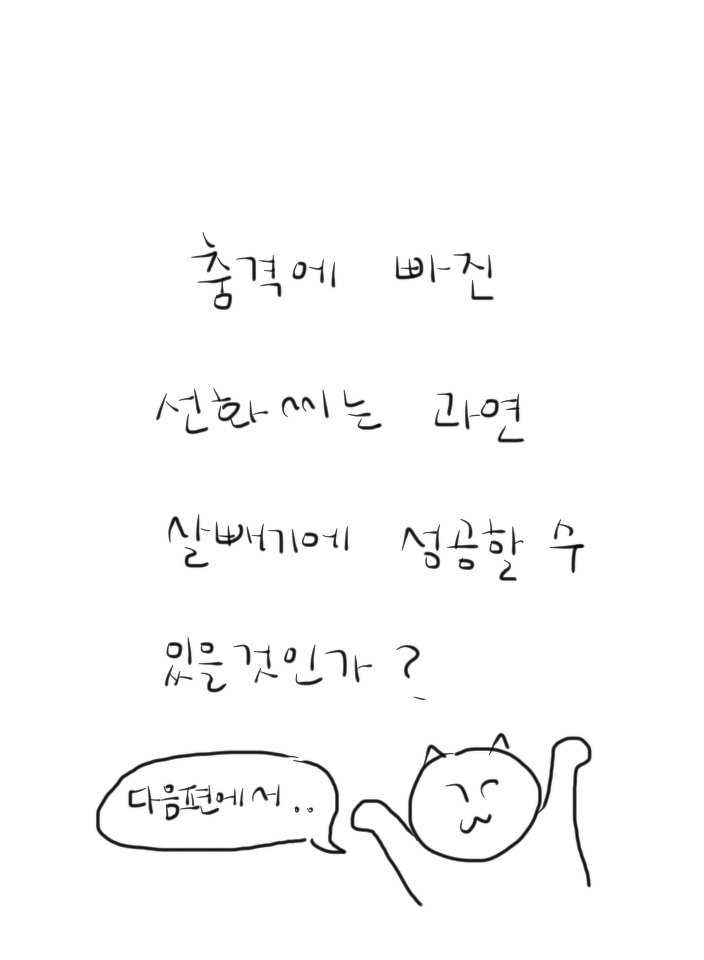 충격에 빠진
선화씨는 과연
살빼기에 성공할 수
있을것인가?
다음편에서..